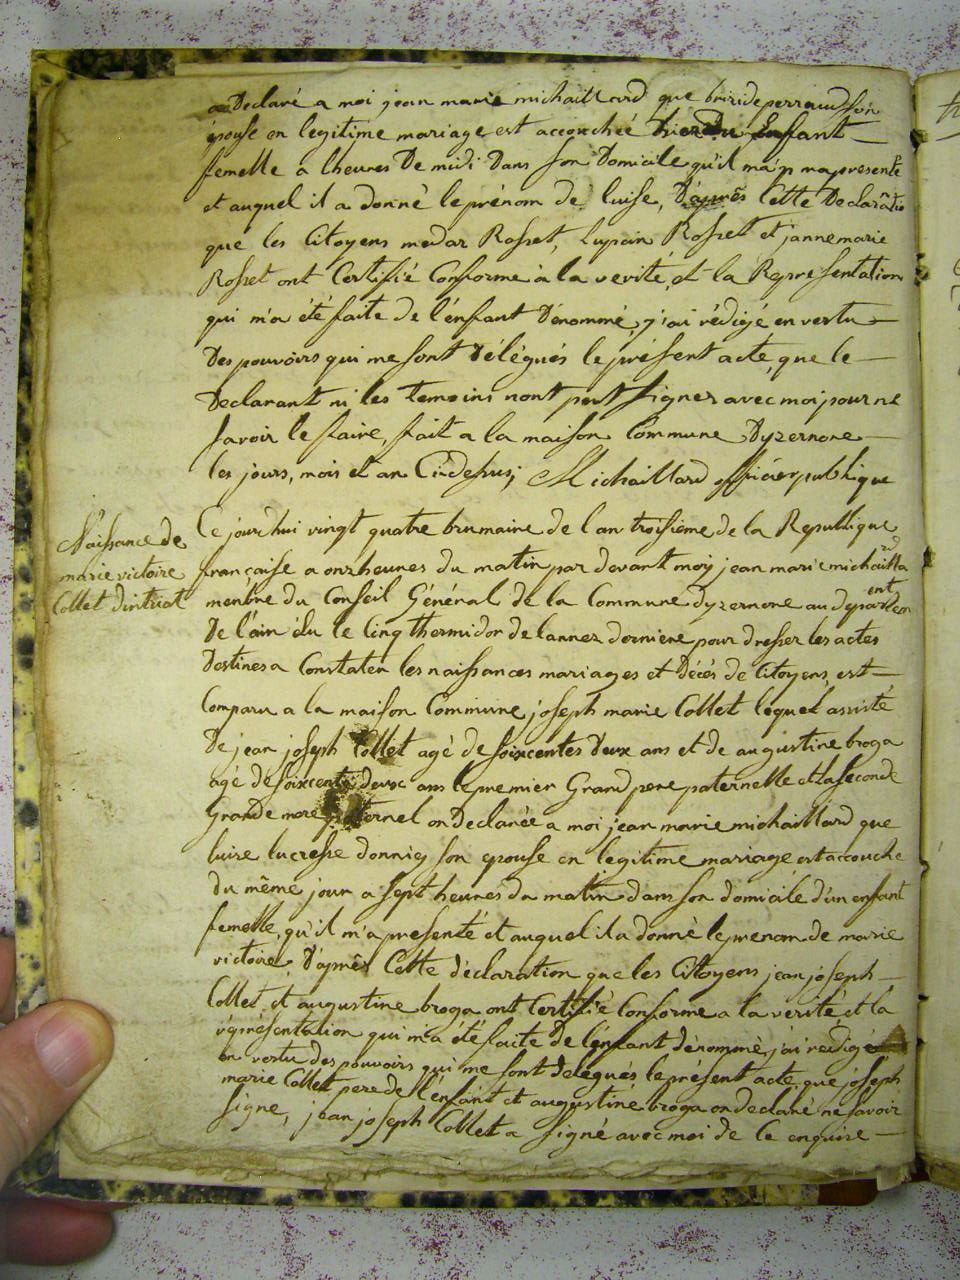 a Declaré a moi jean marie michaillard que brizide perraud son
épouse en legitime mariage est accouchée hier Enfant
femelle a lheures De midi Dans son Domicile qu'il ma presenté
et auquel il a donné le prénom de luise, D'après Cette Declaratio
que les Citoyens medar Rosset, lupain Rosset et jannemarie
Rosset ont Certifié Conforme à la verité, et la Representation
qui m'a été faite de l'énfant Dénommé, j'ai rédigé, en vertu
Des pouvoirs qui me sont délégués le présent acte, que le
Declarant ni les temoins nont peut signer avec moi pour ne
savoir le faire, fait a la maison Commune Dyzernore
les jours, mois et an Cidesus; Michaillard officier publique
Naissance de
marie victoire
Collet dintriat
Ce jourdhui vingt quatre brumaire de l'an troisieme de la Republique
française a onzheures du matin par devant moy jean marie michailla rd
menbre du Conseil Général de la Commune dyzernore au departem ent
De l'ain élu le Cinq thermidor de lannez derniere pour dresser les actes
Destines a Constater les naissances mariages et Décés de Citoyens, est
Comparu a la maison Commune, joseph marie Collet lequel assisté
De jean joseph Collet agé de soixcentes deux ans et de augustine broga
agé de soixcente deux ans le premier Grand pere paternelle et la seconde
Grande mere paternel on Declarée a moi jean marie michaillard que
luise lucresse donniez son epouse en legitime mariage est accouche
du même jour a sept heures du matin dans son domicile d'un enfant
femelle, qu'il m'a presenté et auquel il a donné le prenom de marie
victoire, D'aprés Cette déclaration que les Citoyens jean joseph
Collet et augustine broga ont Certifié Conforme a la verité et la
réprésentation qui m'a été faite de l'énfant dénommé, j'ai redigé
en vertu des pouvoirs qui me sont delegués le present acte, que joseph
marie Collet pere de l'énfant et augustine broga on declaré ne savoir
signe, jean joseph Collet a signé avec moi de Ce enquire